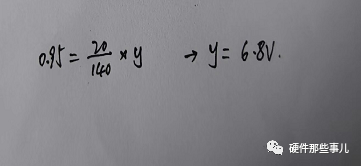 0.95 = 20/140 × y → y = 6.8V.
硬件那些事儿